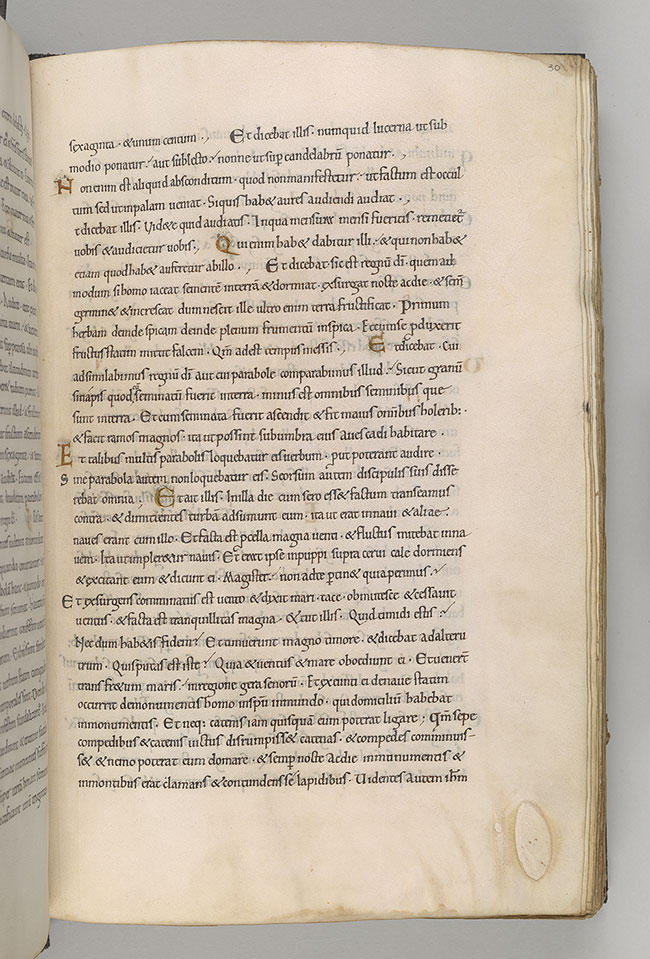 30
sexaginta · & unum centum ., Et dicebat illis · numquid lucerna ut sub
modio ponatur · aut sub lecto · nonne ut sup candelabrū ponatur .,
Non enim est aliquid absconditum · quod non manifestetur · ut factum est occul
tum sed ut in palam veniat · Siquis hab& aures audiendi audiat .,
t dicebat illis · Vid&e quid audiatis · In qua mensura mensi fueritis · remeti&
uobis & audicietur uobis ., Qui enim hab& dabitur illi · & qui non hab&
etiam quod hab& auferetur ab illo ., Et dicebat · sic est regnū dī · quem ad
modum si homo iaceat sementē in terrā & dormiat · exsurgat nocte ac die · & sem̄
germin& & increscat dum nescit ille ultro enim terra fructificat · Primum
herbam deinde spicam deinde plenum frumentū in spica · Et cum se p̄duxerit
fructus statim mittit falcem · Qm̄ adest tempus messis ., Et dicebat · Cui
adsimilabimus regnū dī aut cui parabole comparabimus illud · Sicut granū
sinapis quod seminatū fuerit in terra · minus est omnibus seminibus que
sunt in terra · Et cum seminata fuerit ascendit & fit maius omībus holerib: ·
& facit ramos magnos · ita ut possint sub umbra eius aues caeli habitare ·
Et talibus multis parabolis loquebatur eis uerbum · put poterant audire ·
Sine parabola autem non loquebatur eis · Seorsum autem discipulis suis disse
rebat omnia ., Et ait illis · In illa die cum sero ess& factum transeamus
contra · & dimittentes turbā adsumunt eum · ita ut erat in naui · & aliae
naues erant cum illo · Et facta est p̄cella magna uenti · & fluctus mittebat in na
uem · Ita ut impler&ur nauis · Et erat ipse in puppi supra ceruical e dormiens
& excitant eum & dicunt ei · Magister · non ad te p̄tin& quia perimus ·
Et exsurgens comminatus est uento & dixit mari · tace · obmutesce & cessauit
uentus · & facta est tranquillitas magna · & ait illis · Quid timidi estis ·
Nec dum hab&is fidem · Et timuerunt magno timore · & dicebat ad alteru
trum · Quis putas est iste · Quia & uentus & mare obediunt ei · Et uenerī
trans fr&um maris · in regione gerasenorū · Et exeunti ei de naue statim
occurrit de monumentis homo in spū inmundo · qui domiciliū habebat
in monumentis · Et neq: catenis iam quisquā eum poterat ligare · Qm̄ sepe
compedibus & catenis uictus disrumpiss& catenas · & compedes comminuis
s& & nemo poterat eum domare · & semp nocte ac die in monumentis &
in montibus erat clamans & concidens se lapidibus · Uidentes autem ihm̄